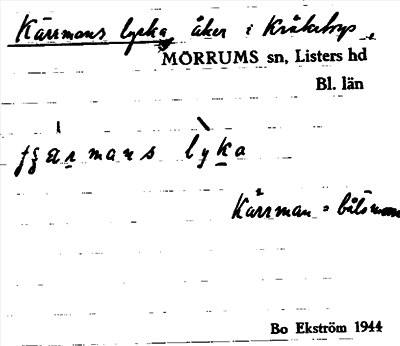 Kärrmans lycka, åker i Kråkebygd,
MÖRRUMS sn, Listers hd
Bl. län
lyka
Kärrman = båtsman
Bo Ekström 1944